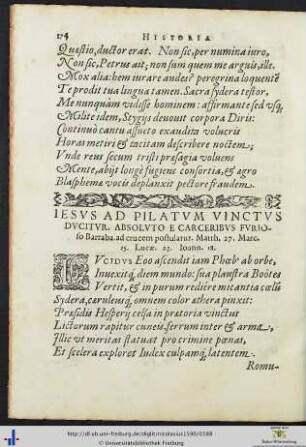 174 HISTORIA
Quæstio, ductor erat. Non sic, per numina iuro,
Non sic, Petrus ait, non sum quem me arguis, ille.
Mox alia: hem iurare audes? peregrina loquentē
Te prodit tua lingua tamen. Sacra sydera testor,
Me nunquàm vidisse hominem: affirmante sed vsq;
Milite idem, Stygys deuouit corpora Diris:
Continuò cantu assueto exaudita volucris
Horas metiri & tacitam describere noctem;
Vnde reus secum tristi præsagia voluens
Mente, abijt longè fugiens consortia, & agro
Blasphemæ vocis deplanxit pectore fraudem.
IESVS AD PILATVM VINCTVS
DVCITVR. ABSOLVTO E CARCERIBVS FVRIO-
so Barraba ad crucem postulatur. Matth. 27. Marc.
15. Lucæ. 23. Ioann. 18.
LVCIDVS Eoo ascendit iam Phœb' ab orbe,
Inuexitq; diem mundo: sua plaustra Boötes
Vertit, & in purum rediere micantia cœlū
Sydera, cæruleusq; omnem color æthera pinxit:
Præsidis Hesperij celsa in prætoria vinctus
Lictorum rapitur cuneis, ferrum inter & arma,
Illic vt meritas statuat pro crimine pœnas,
Et scelera exploret Iudex culpamq; latentem.
Romu-
http://dl.ub.uni-freiburg.de/diglit/nicolausius1590/0188
© Universitätsbibliothek Freiburg